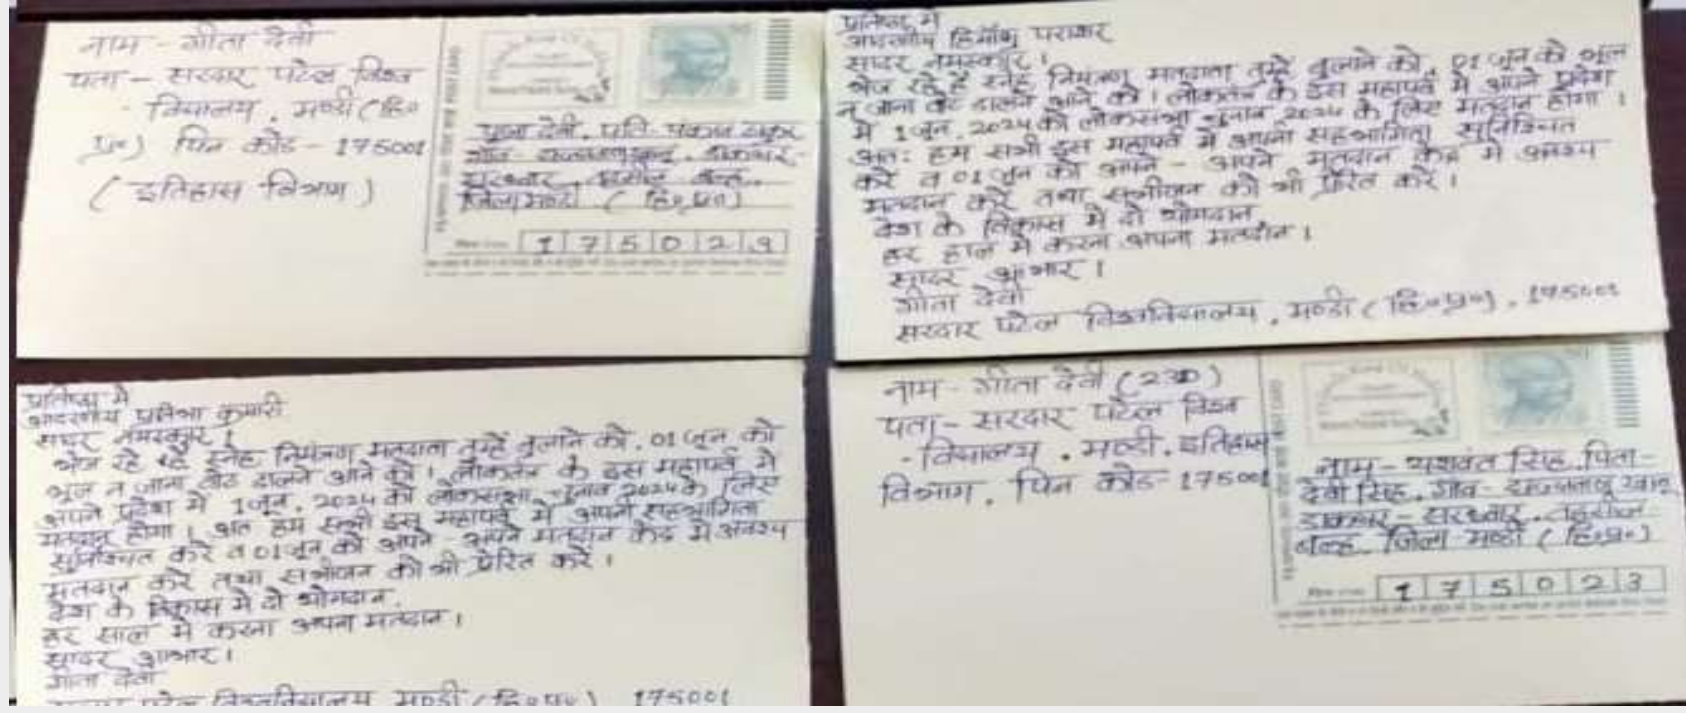 नाम - गीता देवी
पता - सरदार पटेल विश्व
- विद्यालय, मण्डी (हि०
प्र०) पिन कोड - 175001
(इतिहास विभाग)
पूजा देवी, पति - पंकज ठाकुर
गाँव - डाकघर -
जिला मण्डी (हि० प्र०)
175029
प्रतिष्ठा में
आदरणीय हिमाँशु पराशर
सादर नमस्कार।
भेज रहे है स्नेह निमंत्रण मतदाता तुम्हें बुलाने को, 01 जून को भूल
न जाना वोट डालने आने को। लोकतंत्र के इस महापर्व में अपने प्रदेश
में 1 जून, 2024 को लोकसभा चुनाव 2024 के लिए मतदान होगा।
अतः हम सभी इस महापर्व में अपनी सहभागिता सुनिश्चित
करें व 01 जून को अपने - अपने मतदान केंद्र में अवश्य
मतदान करें तथा सभीजन को भी प्रेरित करें।
देश के विकास में दो योगदान,
हर हाल में करना अपना मतदान।
सादर आभार।
गीता देवी
सरदार पटेल विश्वविद्यालय, मण्डी (हि०प्र०), 175001
प्रतिष्ठा में
आदरणीय प्रतिभा कुमारी
सादर नमस्कार।
भेज रहे है स्नेह निमंत्रण मतदाता तुम्हें बुलाने को, 01 जून को
भूल न जाना वोट डालने आने को। लोकतंत्र के इस महापर्व में
अपने प्रदेश में 1 जून, 2024 को लोकसभा चुनाव 2024 के लिए
मतदान होगा। अतः हम सभी इस महापर्व में अपनी सहभागिता
सुनिश्चित करें व 01 जून को अपने - अपने मतदान केंद्र में अवश्य
मतदान करें तथा सभीजन को भी प्रेरित करें।
देश के विकास में दो योगदान,
हर साल में करना अपना मतदान।
सादर आभार।
गीता देवी
पटेल विश्वविद्यालय मण्डी (हि०प्र०) 175001
नाम - गीता देवी (230)
पता - सरदार पटेल विश्व
- विद्यालय, मण्डी, इतिहास
विभाग, पिन कोड - 175001
नाम - यशवंत सिंह, पिता -
देवी सिंह, गाँव -
डाकघर - तहसील -
बल्ह, जिला मण्डी (हि०प्र०)
175023